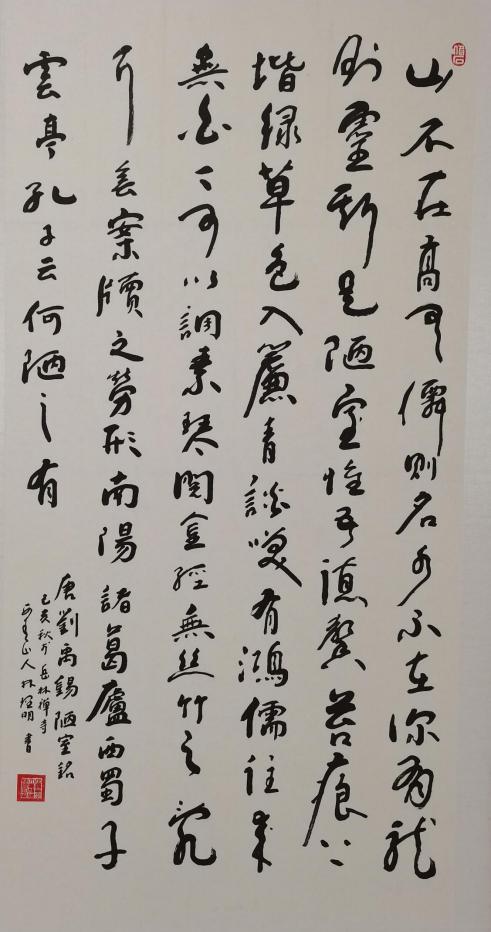 山不在高有僊則名水不在深有龍
則靈斯是陋室惟吾德馨苔痕上
堦緑草色入簾青談笑有鴻儒往来
無白丁可以調素琴閱金經無丝竹之亂
耳無案牘之勞形南陽諸葛廬西蜀子
雲亭孔子云何陋之有
唐劉禹錫陋室銘
己亥秋於岳林禅寺
山人林明書